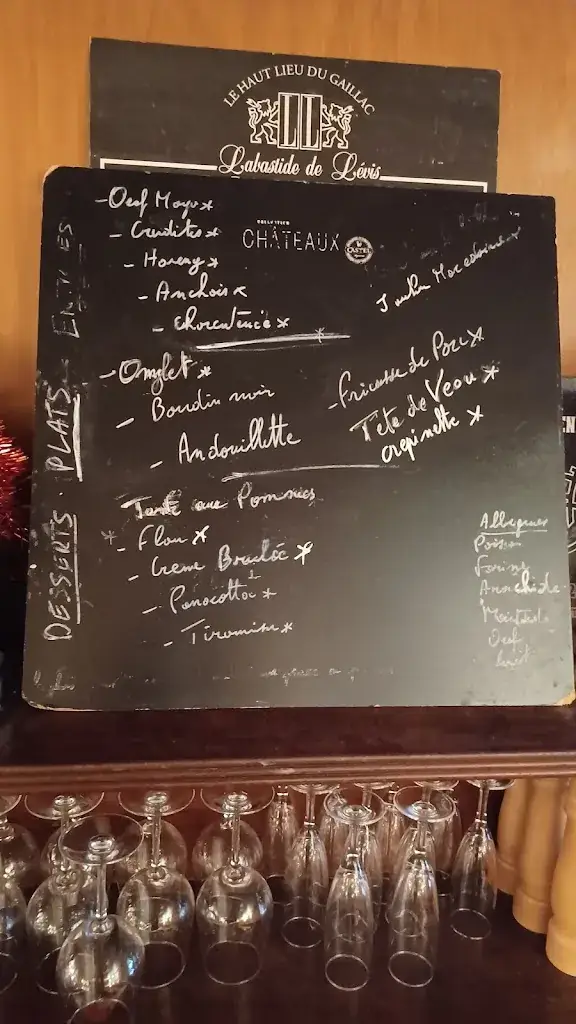 LE HAUT LIEU DU GAILLAC
LL
Labastide de Lévis
CHÂTEAUX
CASTEL
ENTREES
- Oeuf Mayo *
- Crudités *
- Hareng *
- Anchois *
- *
Macedoine *
PLATS
- Omglet *
- Boudin noir
- Andouillette
- Fricasse de Porc *
Tete de Veau *
crepinette *
DESSERTS
Tarte aux Pommes
* - Flan *
- Creme Brulée *
- Panacotta *
- Tiramisu *
Allergenes
Poisson
Farine
Arachide
Moutarde
Oeuf
lait